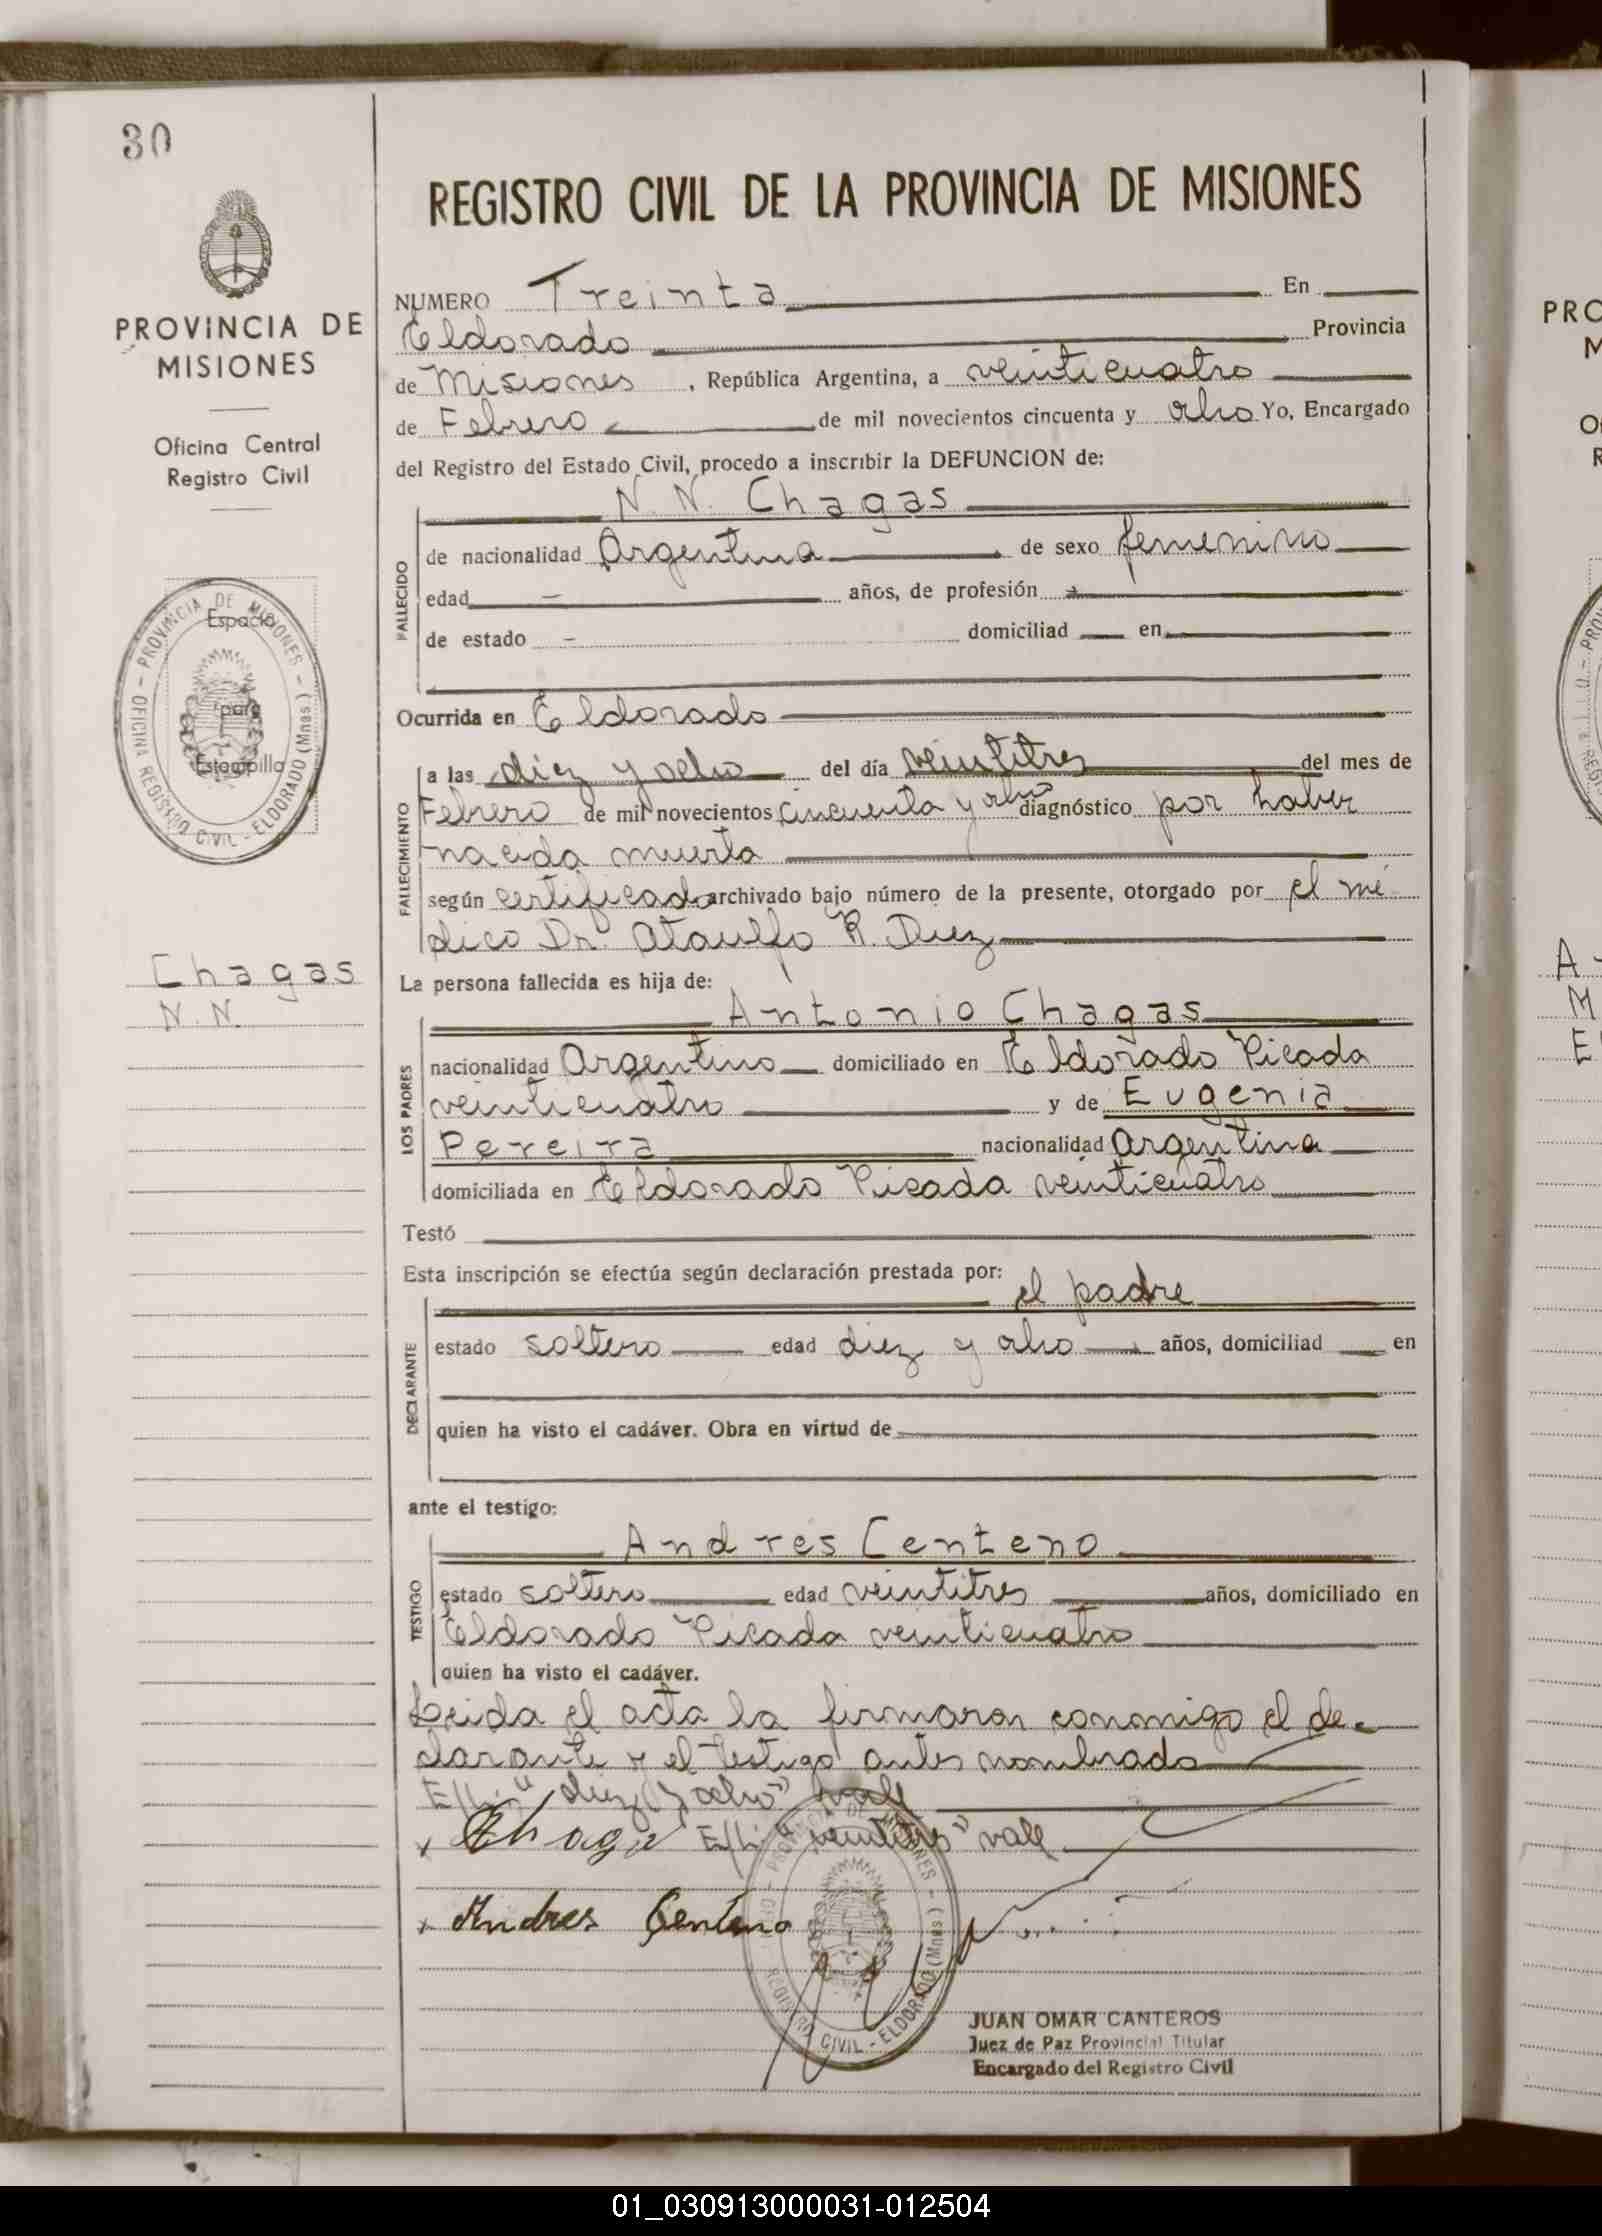 30
PROVINCIA DE
MISIONES
Oficina Central
Registro Civil
Espacio
para
Estampilla
PROVINCIA DE MISIONES - ELDORADO (Mnes) - OFICINA REGISTRO CIVIL
Chagas
N. N.
REGISTRO CIVIL DE LA PROVINCIA DE MISIONES
NUMERO Treinta En
Eldorado Provincia
de Misiones, República Argentina, a veinticuatro
de Febrero de mil novecientos cincuenta y ocho Yo, Encargado
del Registro del Estado Civil, procedo a inscribir la DEFUNCION de:
N. N. Chagas
FALLECIDO
de nacionalidad Argentina de sexo femenino
edad — años, de profesión
de estado — domiciliad en
Ocurrida en Eldorado
FALLECIMIENTO
a las diez y ocho del día veintitres del mes de
Febrero de mil novecientos cincuenta y ocho diagnóstico por haber
nacida muerta
según certificado archivado bajo número de la presente, otorgado por el mé-
dico Dr. Ataulfo R. Diez
La persona fallecida es hija de:
LOS PADRES
Antonio Chagas
nacionalidad Argentino domiciliado en Eldorado Picada
veinticuatro y de Eugenia
Pereira nacionalidad Argentina
domiciliada en Eldorado Picada veinticuatro
Testó
Esta inscripción se efectúa según declaración prestada por:
DECLARANTE
el padre
estado soltero edad diez y ocho años, domiciliad en
quien ha visto el cadáver. Obra en virtud de
ante el testigo:
TESTIGO
Andrés Centeno
estado soltero edad veintitres años, domiciliado en
Eldorado Picada veinticuatro
quien ha visto el cadáver.
Leida el acta la firmaron conmigo el de-
clarante y el testigo antes nombrado
E/L: "diez y ocho" vale
Chaga E/L: "veintitres" vale
Andres Centeno
PROVINCIA DE MISIONES - ELDORADO (Mnes) - REGISTRO CIVIL
JUAN OMAR CANTEROS
Juez de Paz Provincial Titular
Encargado del Registro Civil
PRO
M
A
M
E
01_030913000031-012504